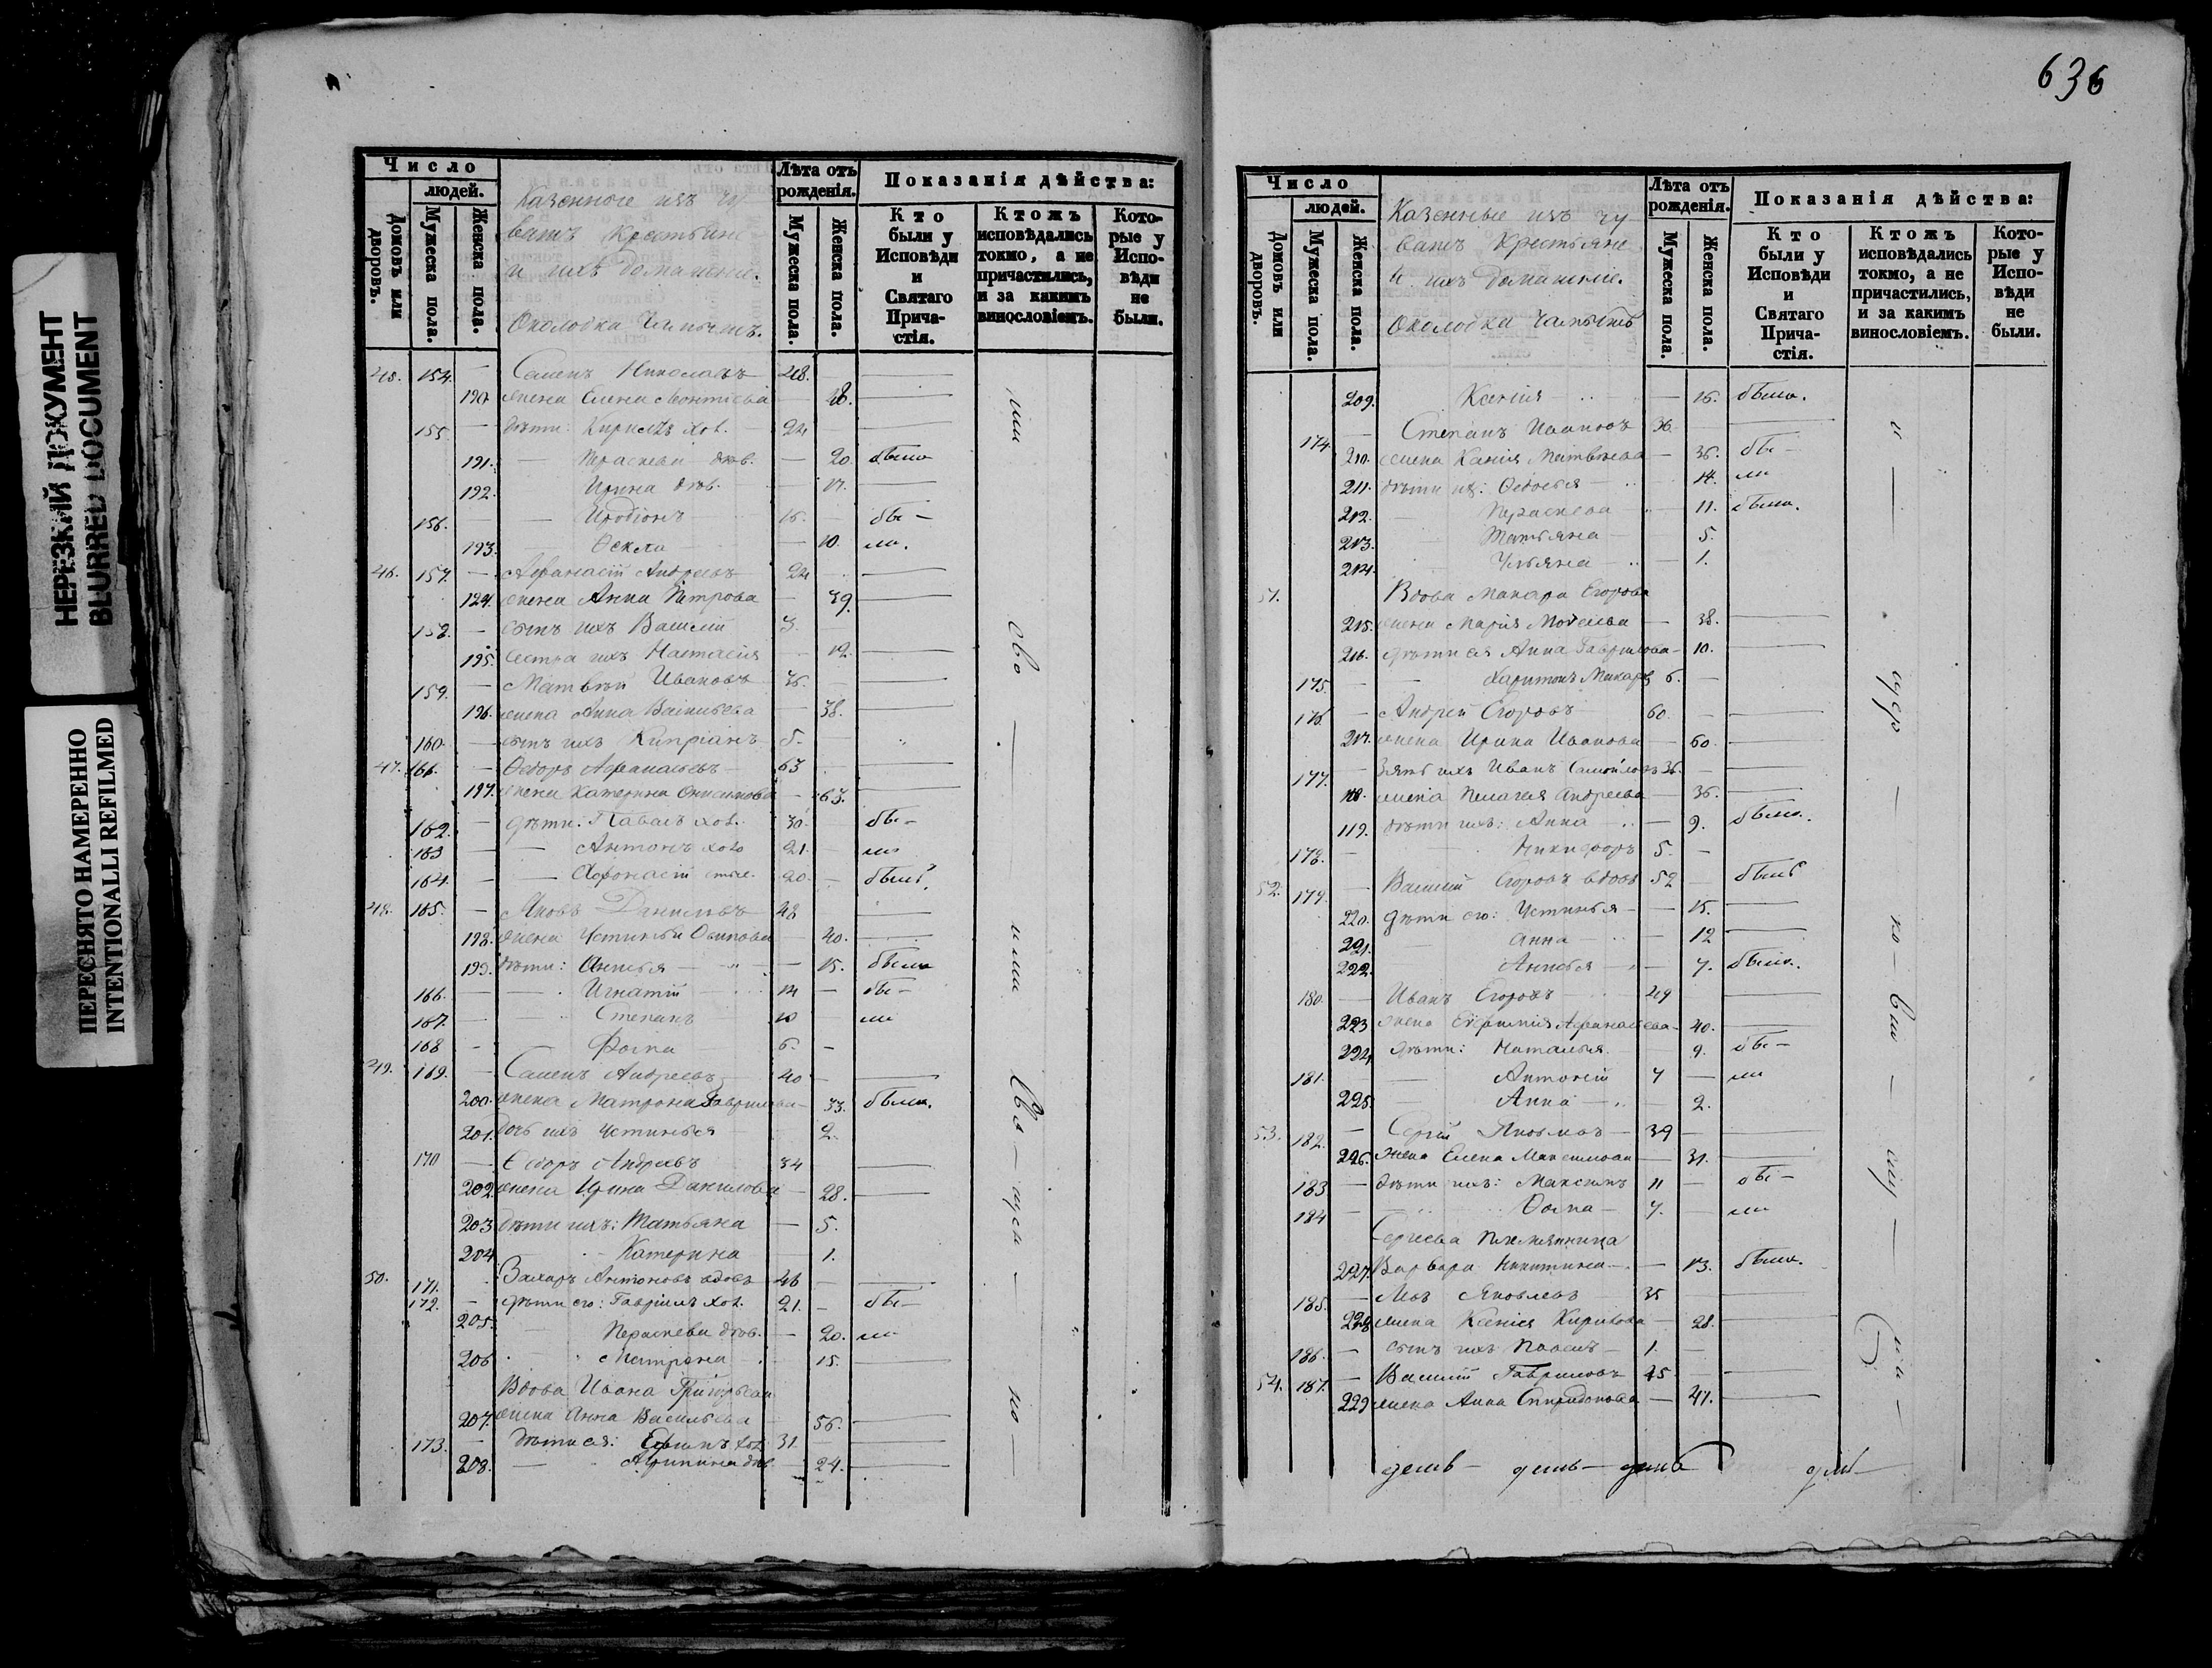 НЕРЕЗКИЙ ДОКУМЕНТ
BLURRED DOCUMENT
ПЕРЕСНЯТО НАМЕРЕННО
INTENTIONALLI REFILMED
Число
людей.
Домовъ или дворовъ.
Мужеска пола.
Женска пола.
Казенные изъ чу
вашъ Крестьяне
и ихъ домашніе.
Околодка
Лѣта отъ рожденія.
Мужеска пола.
Женска пола.
Показанія дѣйства:
Кто были у Исповѣди и Святаго Причастія.
Ктожъ исповѣдались токмо, а не причастились, и за какимъ винословіемъ.
Которые у Исповѣди не были.
154. Семенъ Николаевъ
190. жена Елена Леонтьева
155. дѣти: Кирилъ хол. 24
191. Праскева дѣв. 20. была
192. Ирина дѣв. 17.
156. Иродіонъ 16. бы-
193. Ѳекла 10. ли.
46. 157. Афанасій Андреевъ 24
жена Анна Петрова 39
сынъ ихъ Василій 3.
195. сестра ихъ Настасія 12.
159. Матвѣй Ивановъ 36.
196. жена Анна Васильева 38.
160. сынъ ихъ Кипріанъ 5.
47. Ѳедоръ Афанасьевъ 63
197. жена Катерина Онисимова 63.
162. дѣти: Павелъ хол. 30. бы-
163 Антонъ хол. 21. ли
164. Афонасій 20. былъ
48. 165. Яковъ Даниловъ 48
198. жена Устинья Осипова 40.
199. дѣти: Анисья 15. была
166. Игнатій 14 бы-
167. Степанъ 10 ли
168 Фома 6.
49. 169. Семенъ Андреевъ 40
200. жена Матрона Гаврилова 33. была.
201. дочь ихъ Устинья 2.
170 Ѳедоръ Андреевъ 34
202. жена Ирина Данилова 28.
203 дѣти ихъ: Татьяна 5.
204 Катерина 1.
50. 171. Захаръ Антоновъ вдовъ 46
172. дѣти его: Гаврилъ хол. 21. бы-
205. Праскева дѣв. 20. ли
206 Матрона 15.
Вдова Ивана Григорьева
207. жена Анна Васильева 56.
173. дѣти ея: Ефимъ хол. 31.
208. Агрипина дѣв. 24.
636
Число
людей.
Домовъ или дворовъ.
Мужеска пола.
Женска пола.
Казенные изъ чу
вашъ Крестьяне
и ихъ домашніе.
Околодка
Лѣта отъ рожденія.
Мужеска пола.
Женска пола.
Показанія дѣйства:
Кто были у Исповѣди и Святаго Причастія.
Ктожъ исповѣдались токмо, а не причастились, и за какимъ винословіемъ.
Которые у Исповѣди не были.
209. Ксенія 16. была.
174. Степанъ Ивановъ 36.
210. жена Ксенія Матвѣева 36. бы-
211. дѣти их: Федосья 14. ли
212. Праскева 11. была.
213. Татьяна 5.
214. Ульяна 1.
51. Вдова Макара Егорова
215. жена Марія Моисеева 38.
216. дѣти ея Анна Гаврилова 10.
175. Харитонъ Макаръ 6.
176. Андрей Егоровъ 60.
217. жена Ирина Иванова 60.
177. Зять ихъ Иванъ Самойловъ 36.
жена Пелагея Андреева 36.
119. дѣти ихъ: Анна 9. была.
178. Никифоръ 5.
52. 179. Василій Егоровъ вдовъ 52 былъ
220. дѣти его: Устинья 15.
221. Анна 12
222. Анисья 7. была.
180. Иванъ Егоровъ 49
223 жена Евфимія Афанасьева 40.
224. дѣти: Наталья 9. бы-
181. Антоній 4 ли
225. Анна 2.
53. 182. Сергій Яковлевъ 39
226. Жена Елена Максимова 31.
183. дѣти ихъ: Максимъ 11 бы-
184 Фома 7. ли
Сергіева племянница
227. Варвара Никитина 13. была.
185. Левъ Яковлевъ 35
228 жена Ксенія Кирилова 28.
186. сынъ ихъ Павелъ 1.
54. 187. Василій Гавриловъ 45
229 жена Анна Спиридонова 47.